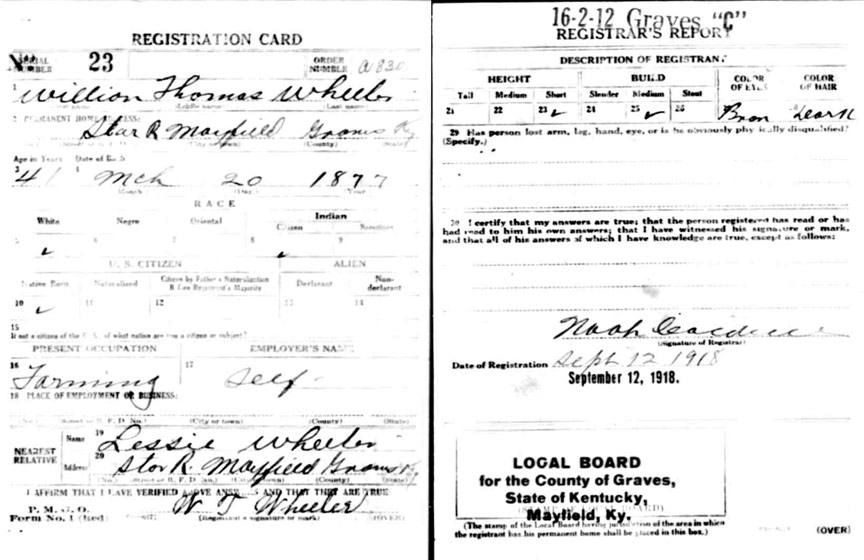 REGISTRATION CARD
SERIAL NUMBER 23 ORDER NUMBER A 830
1 Willion Thomas Wheeler
(Middle name) (Last name)
2 PERMANENT HOME ADDRESS:
Star R Mayfield Graves Ky
(City or town) (County) (State)
Age in Years Date of Birth
3 41 4 Mch 20 1877
(Month) (Day) (Year)
RACE
White Negro Oriental Indian
Citizen Noncitizen
5 ✓ 6 7 8 ✓ 9
U. S. CITIZEN ALIEN
Native Born Naturalized Citizen by Father's Naturalization Before Registrant's Majority Declarant Non-declarant
10 ✓ 11 12 13 14
15
If not a citizen of the U. S., of what nation are you a citizen or subject?
PRESENT OCCUPATION EMPLOYER'S NAME
16 Farming 17 Self
18 PLACE OF EMPLOYMENT OR BUSINESS:
(No.) (Street or R. F. D. No.) (City or town) (County) (State)
NEAREST RELATIVE
Name 19 Lessie Wheeler
Address 20 Star R. Mayfield Graves Ky
(No.) (Street or R. F. D. No.) (City or town) (County) (State)
I AFFIRM THAT I HAVE VERIFIED ABOVE ANSWERS AND THAT THEY ARE TRUE
W T Wheeler
P. M. G. O.
Form No. 1 (Red) (Registrant's signature or mark) (OVER)
16-2-12 Graves "C"
REGISTRAR'S REPORT
DESCRIPTION OF REGISTRANT
HEIGHT BUILD COLOR OF EYES COLOR OF HAIR
Tall Medium Short Slender Medium Stout
21 22 23 ✓ 24 25 ✓ 26 Bron Dark
29 Has person lost arm, leg, hand, eye, or is he obviously physically disqualified?
(Specify.)
30 I certify that my answers are true; that the person registered has read or has
had read to him his own answers; that I have witnessed his signature or mark,
and that all of his answers of which I have knowledge are true, except as follows:
Noah
(Signature of Registrar)
Date of Registration Sept 12 1918
September 12, 1918.
LOCAL BOARD
for the County of Graves,
State of Kentucky,
Mayfield, Ky.
(The stamp of the Local Board having jurisdiction of the area in which
the registrant has his permanent home shall be placed in this box.)
(OVER)